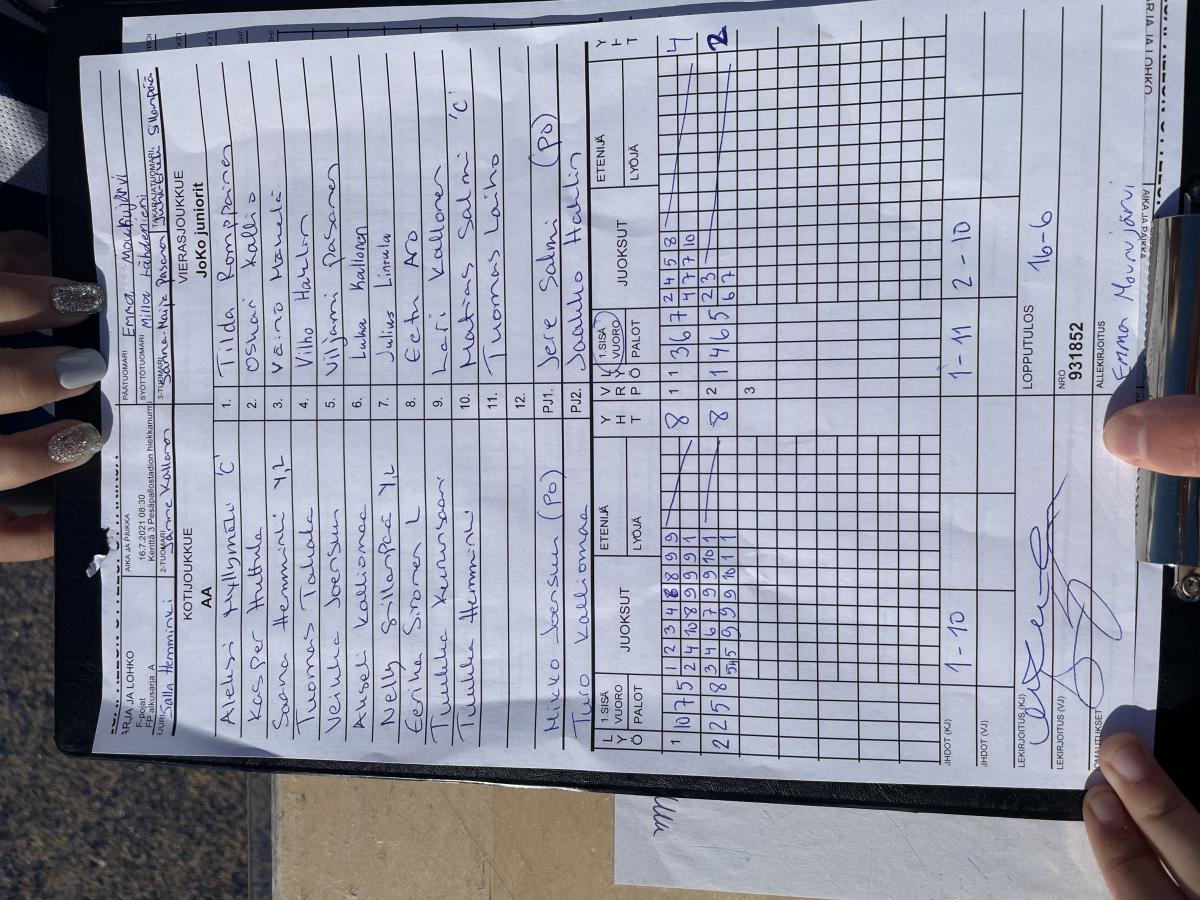 ARJA JA LOHKO
F-pojat
FP alkusarja A
AIKA JA PAIKKA
16.7.2021 08:30
Kenttä 3 Pesäpallostadion hiekkanurmi
PÄÄTUOMARI Emma Mourujärvi
SYÖTTÖTUOMARI Milla Lähdeniemi
Salla Hemminki
2-TUOMARI Sanne Kallonen
3-TUOMARI Sanna-Maija Pasanen
TAKARAJATUOMARI Sillanpää
KOTIJOUKKUE
AA
VIERASJOUKKUE
JoKo juniorit
Aleksi Myllymäki 'C' 1. Tilda Romppainen
Kasper Huttula 2. Oskari Kallio
Saana Hemminki Y,L 3. Väinö Mankelä
Tuomas Takala 4. Vilho Harlin
Veikka Joensuu 5. Viljami Pasanen
Akseli Kalliomaa 6. Luka Kallonen
Nelly Sillanpää Y,L 7. Julius Lintula
Eerika Sironen L 8. Eetu Aro
Tuukka Kurunsaari 9. Lari Kallonen
Tuukka Hemminki 10. Matias Salmi 'C'
11. Tuomas Laiho
12.
Mikko Joensuu (PO) PJ1. Jere Salmi (PO)
Turo Kalliomaa PJ2. Jaakko Harlin
L Y Ö 1.SISÄ VUORO PALOT JUOKSUT ETENIJÄ LYÖJÄ Y H T V R P L Y Ö 1.SISÄ VUORO PALOT JUOKSUT ETENIJÄ LYÖJÄ Y H T
1 10 7 5 1 2 3 4 8 8 9 9 8 1 1 3 6 7 2 4 5 8 4
2 4 10 8 9 9 9 1 4 7 7 10
2 2 5 8 3 4 6 7 9 9 10 1 8 2 1 4 6 5 2 3 2
5 9 9 9 10 1 1 6 7
3
1-10 1-11 2-10
LOPPUTULOS 16-6
LEKIRJOITUS (KJ)
LEKIRJOITUS (VJ)
NRO
931852
ALLEKIRJOITUS
Emma Mourujärvi